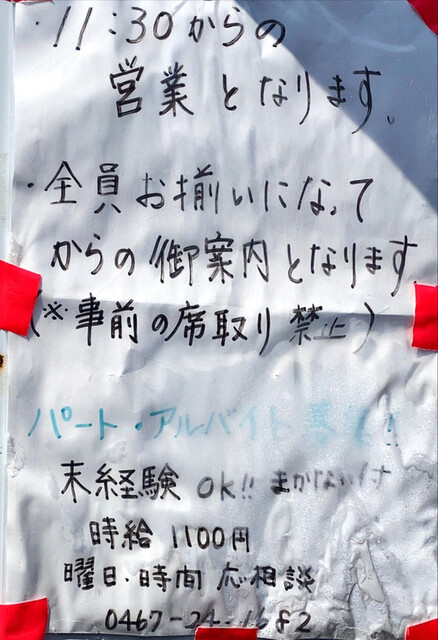 ・11:30からの
営業となります。
・全員お揃いになって
からの御案内となります
(※事前の席取り禁止)
パート・アルバイト募集!!
未経験OK!! まかない付
時給1100円
曜日・時間 応相談
0467-24-